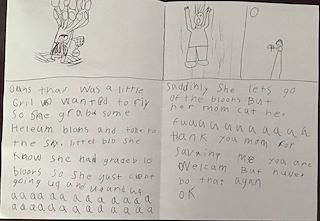 Oans thar was a little
Gril wo wanted to fly
So she grabd some
Heleum blons and toke to
the Say. little bib she
know she had grabed to
bloons so she gust cept
going up and up and up
a a a a a a a a a a
a a a a a a a a a a
Suddinly she lets go
of the bloons But
her mom cat her
thank you mom for
saveing me you are
Welcam But never
do that agan
OK